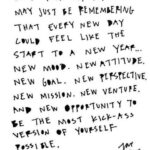 MAY JUST BE REMEMBERING
THAT EVERY NEW DAY
COULD FEEL LIKE THE
START TO A NEW YEAR...
NEW MOOD. NEW ATTITUDE.
NEW GOAL. NEW PERSPECTIVE.
NEW MISSION. NEW VENTURE.
AND NEW OPPORTUNITY TO
BE THE MOST KICK-ASS
VERSION OF YOURSELF
POSSIBLE.